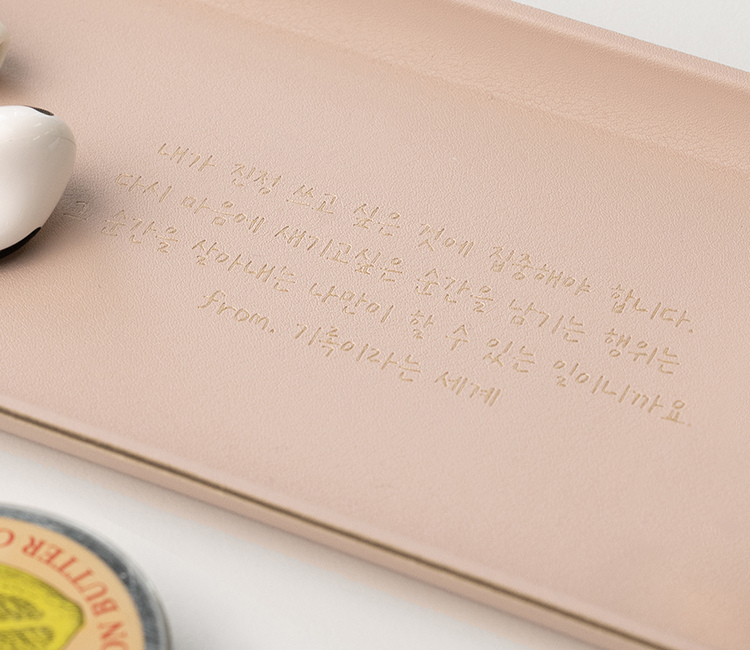 내가 진정 쓰고 싶은 것에 집중해야 합니다.
다시 마음에 새기고싶은 순간을 남기는 행위는
그 순간을 살아내는 나만이 할 수 있는 일이니까요.
from. 기록이라는 세계
ON BUTTER C